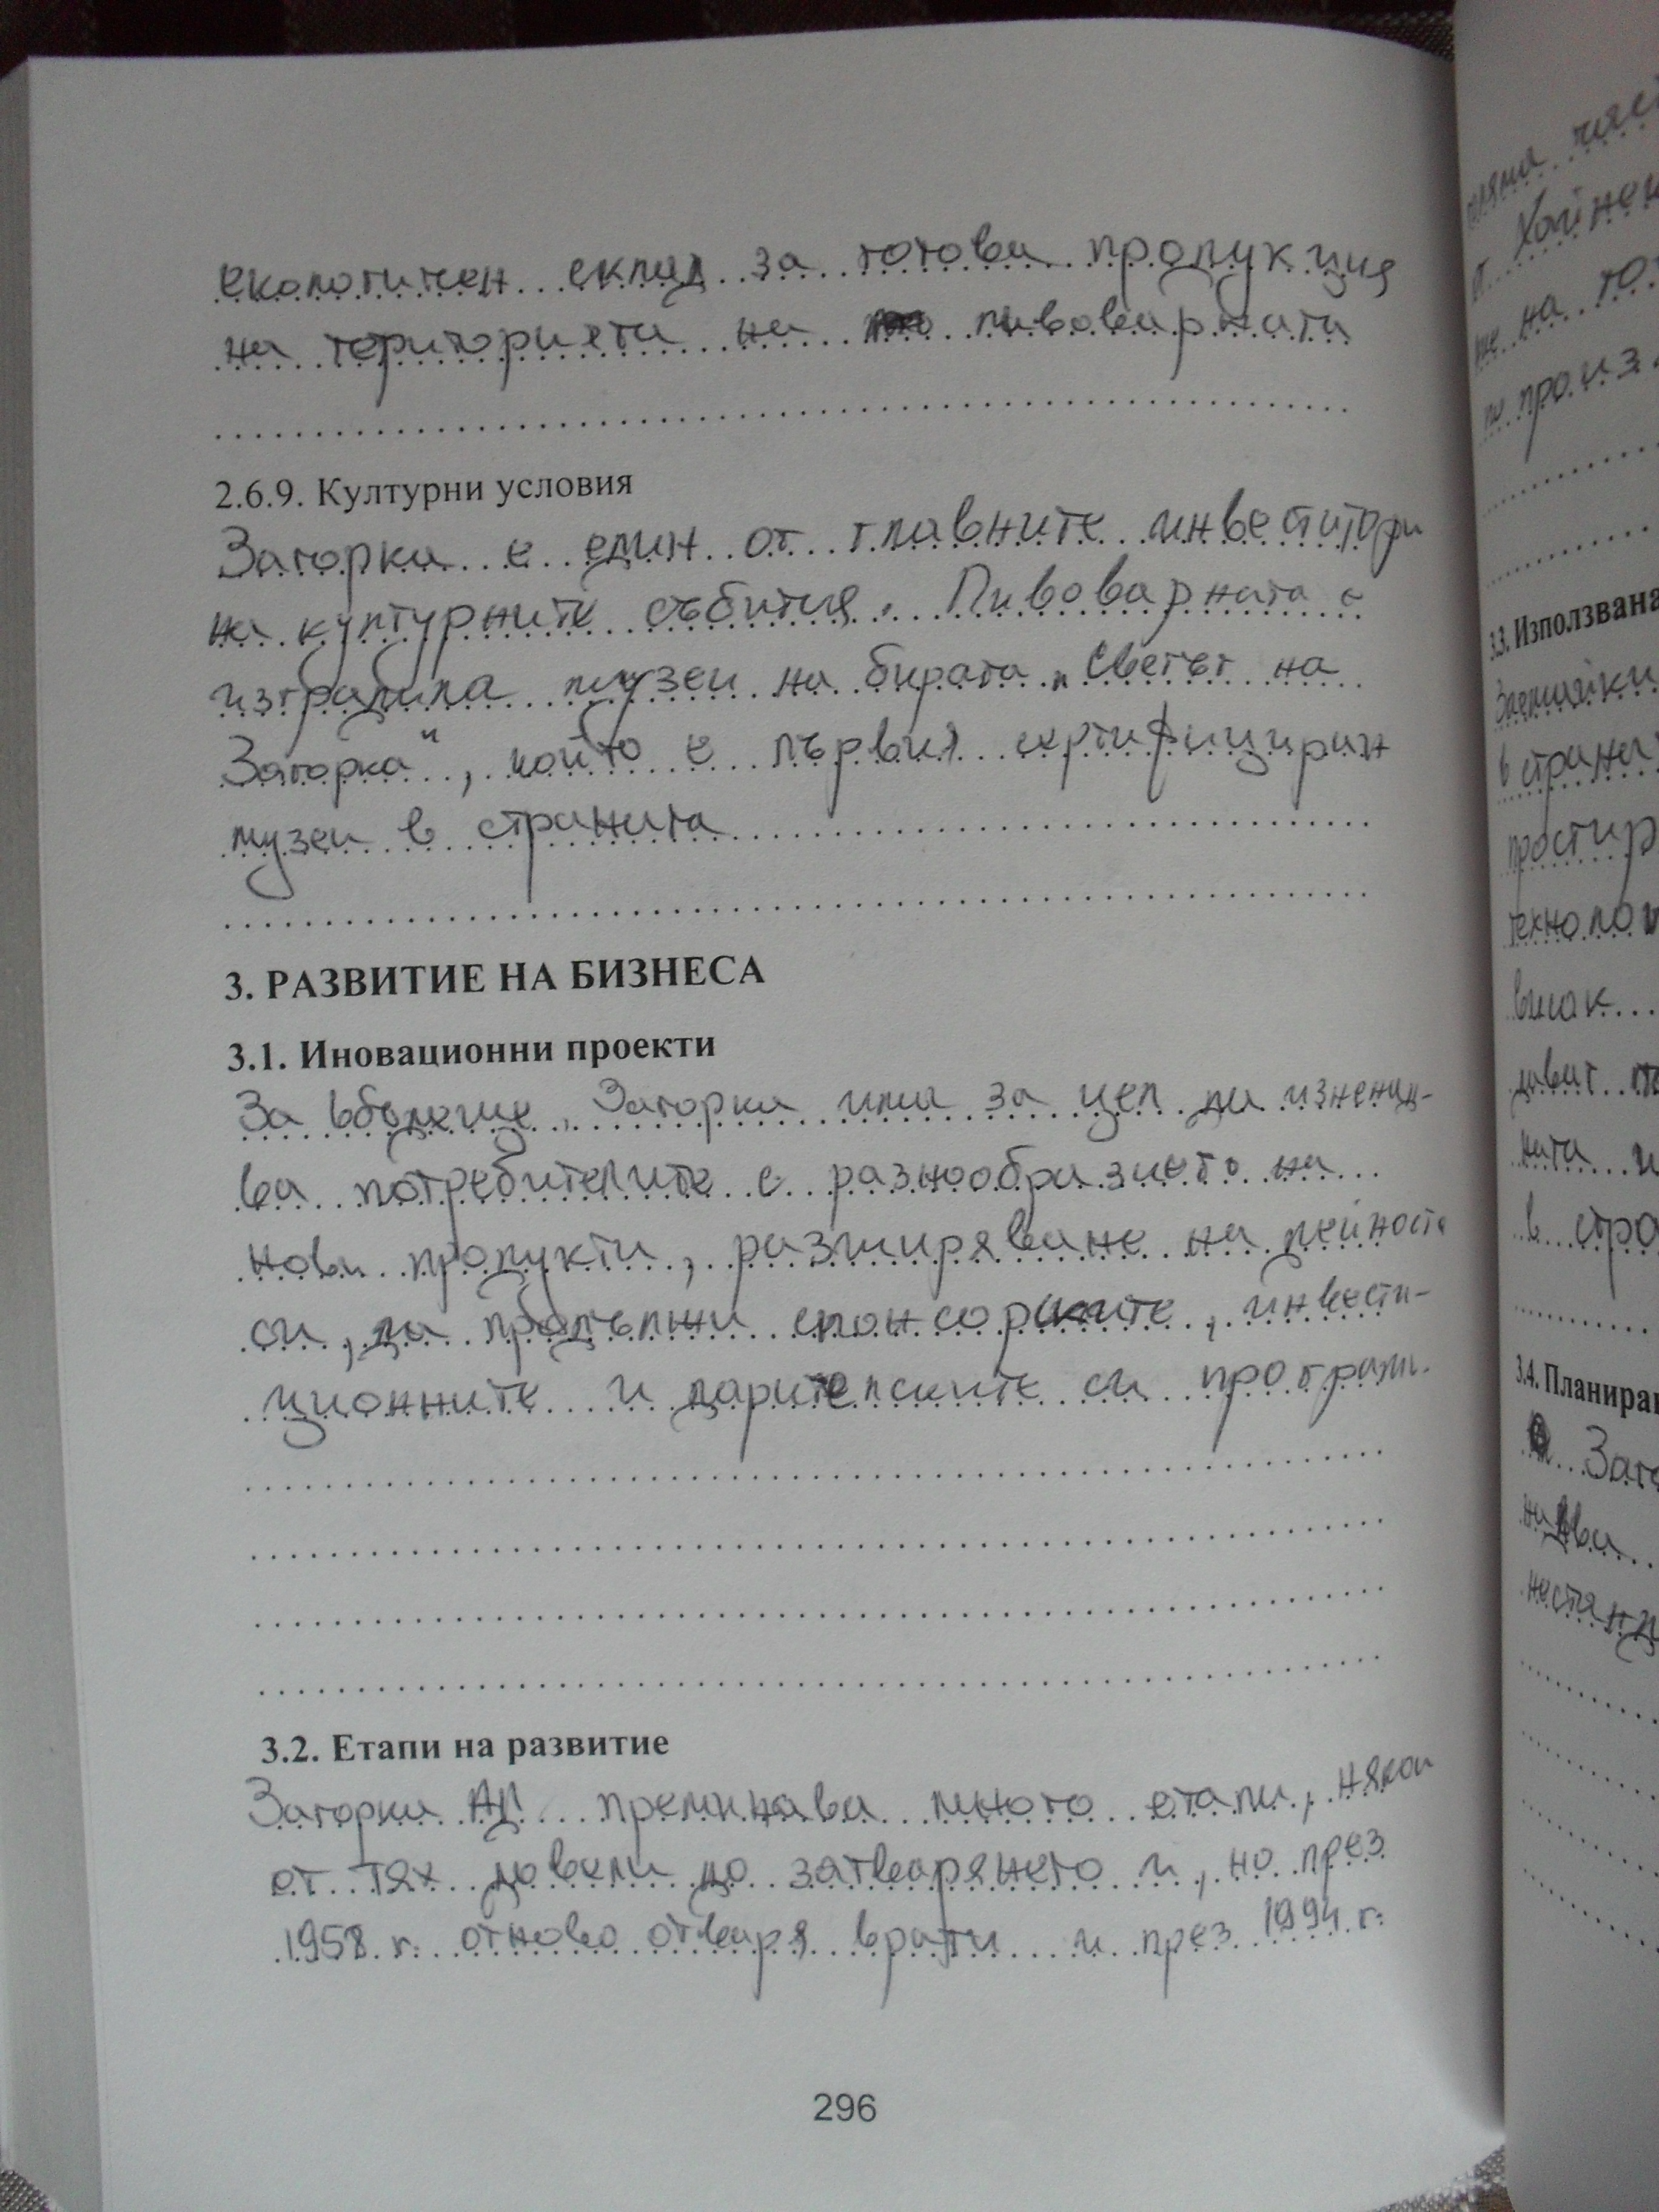 екологичен склад за готова продукция
на територията на пивоварната
2.6.9. Културни условия
Загорка е един от главните инвеститори
на културните събития. Пивоварната е
изградила музей на бирата „Светът на
Загорка“, който е първия сертифициран
музей в страната
3. РАЗВИТИЕ НА БИЗНЕСА
3.1. Иновационни проекти
За в бъдеще, Загорка има за цел да изненад-
ва потребителите с разнообразието на
нови продукти, разширяване на дейността
си, да продължи спонсорските, инвести-
ционните и дарителските си програми.
3.2. Етапи на развитие
Загорка АД преминава много етапи, някои
от тях довели до затварянето и, но през
1958 г. отново отваря врати и през 1994 г.
296
Хайнек
на
произ
3.3. Използвана
Заемайки
в страна
простир
технолог
висок
в стра
3.4. Планиран
Заго